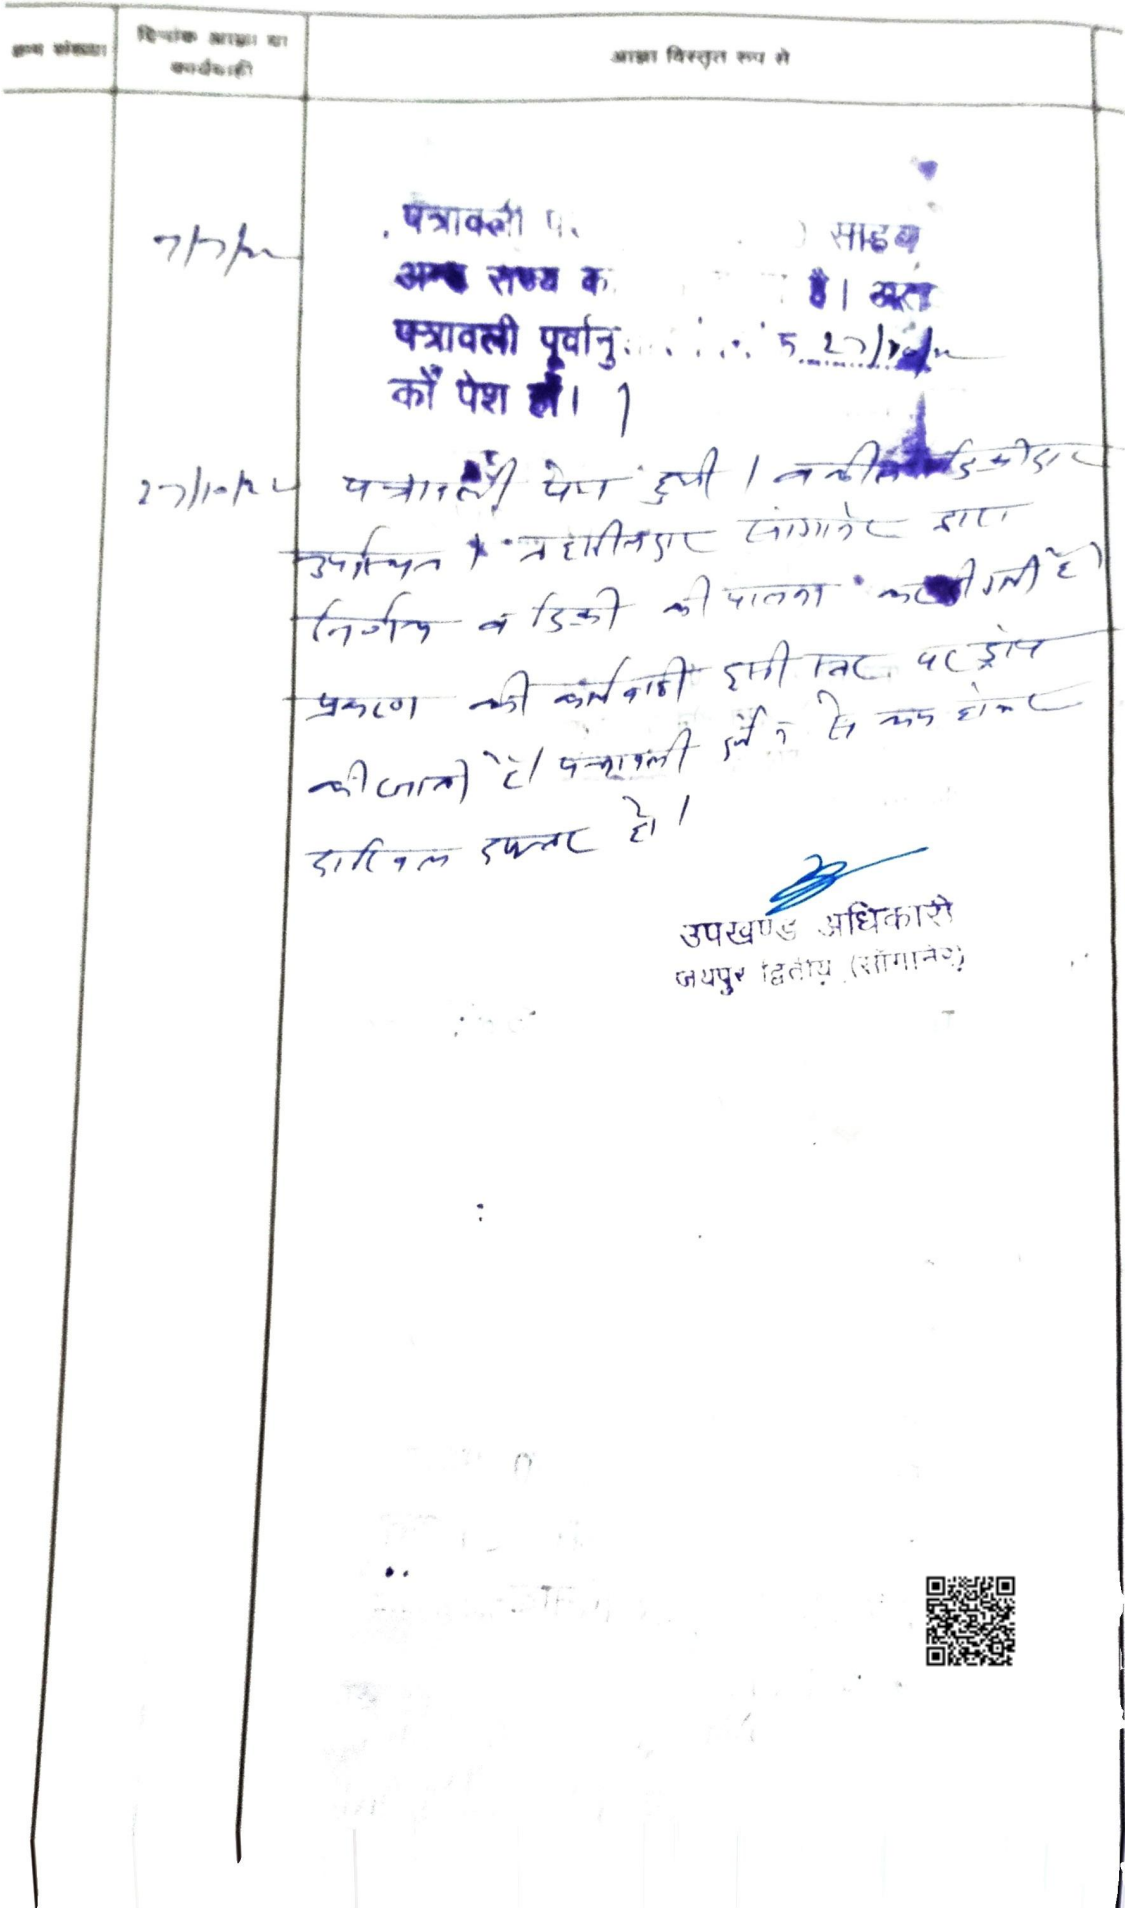 क्रम संख्या
दिनांक आज्ञा या
कार्यवाही
आज्ञा विस्तृत रूप से
7/7/22
पत्रावली साहब
अन्य राज्य है। अतः
पत्रावली पूर्वानु 27/10/22
को पेश हो।
27/10/22
पत्रावली पेश हुयी। वकील डिक्रीदार
उपस्थित। तहसीलदार सांगानेर द्वारा
निर्णय व डिक्री की पालना कर दी गयी है।
प्रकरण की कार्यवाही इसी स्तर पर ड्रोप
की जाती है। पत्रावली से कम होकर
दाखिल दफ्तर हो।
उपखण्ड अधिकारी
जयपुर द्वितीय (सांगानेर)